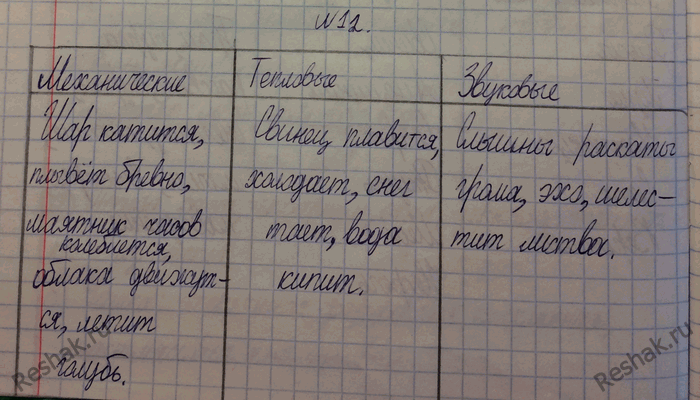 N12.
Механические
Тепловые
Звуковые
Шар катится,
плывёт бревно,
маятник часов
колеблется,
облака движут-
ся, летит
голубь.
Свинец плавится,
холодает, снег
тает, вода
кипит.
Слышны раскаты
грома, эхо, шелес-
тит листва.
Reshak.ru
Reshak.ru